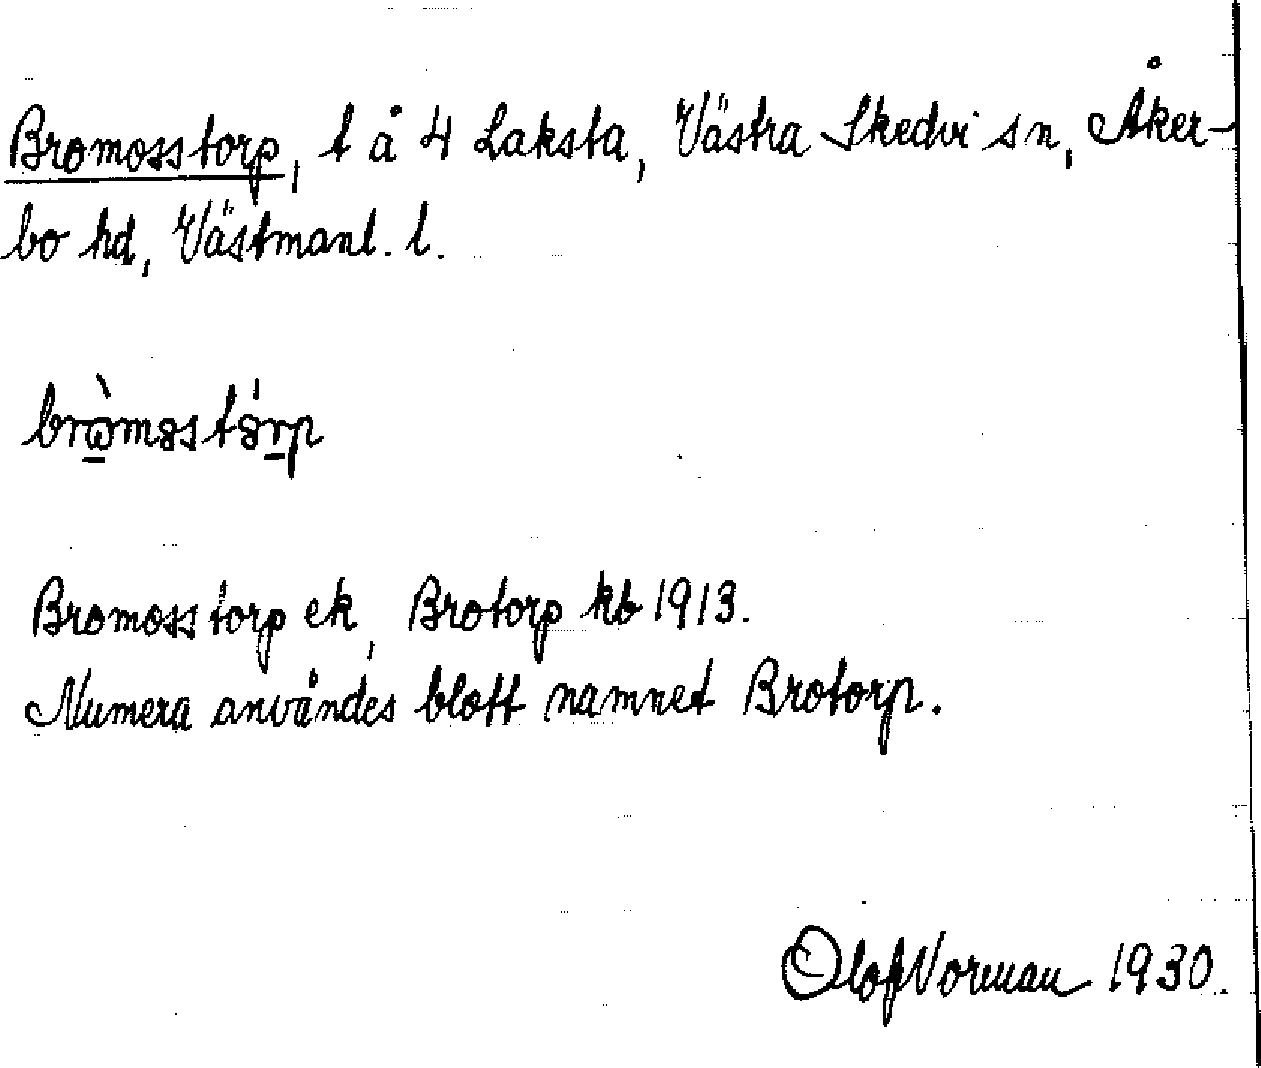 Bromosstorp, t å 4 Laksta, Västra Skedvi sn, Åker-
bo hd, Västmanl. l.
Bromosstorp ek, Brotorp kb 1913.
Numera användes blott namnet Brotorp.
Olof Vorman 1930.